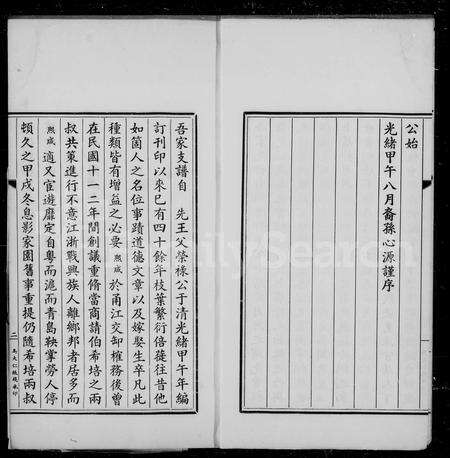 公始
光緒甲午八月裔孫心源謹序
吾家支譜自　先王父榮祿公于清光緒甲午年編
訂刊印以來已有四十餘年枝葉繁衍倍蓰往昔他
如箇人之名位事蹟道德文章以及嫁娶生卒凡此
種類皆有增益之必要熙咸於甬江交卸榷務後曾
在民國十一二年間創議重脩當商請伯希培之兩
叔共策進行不意江浙戰興族人離鄉邦者居多而
熙咸適又宦遊靡定自粵而滬而青島鞅掌勞人停
頓久之甲戌冬息影家園舊事重提仍隨希培兩叔
二
FamilySearch